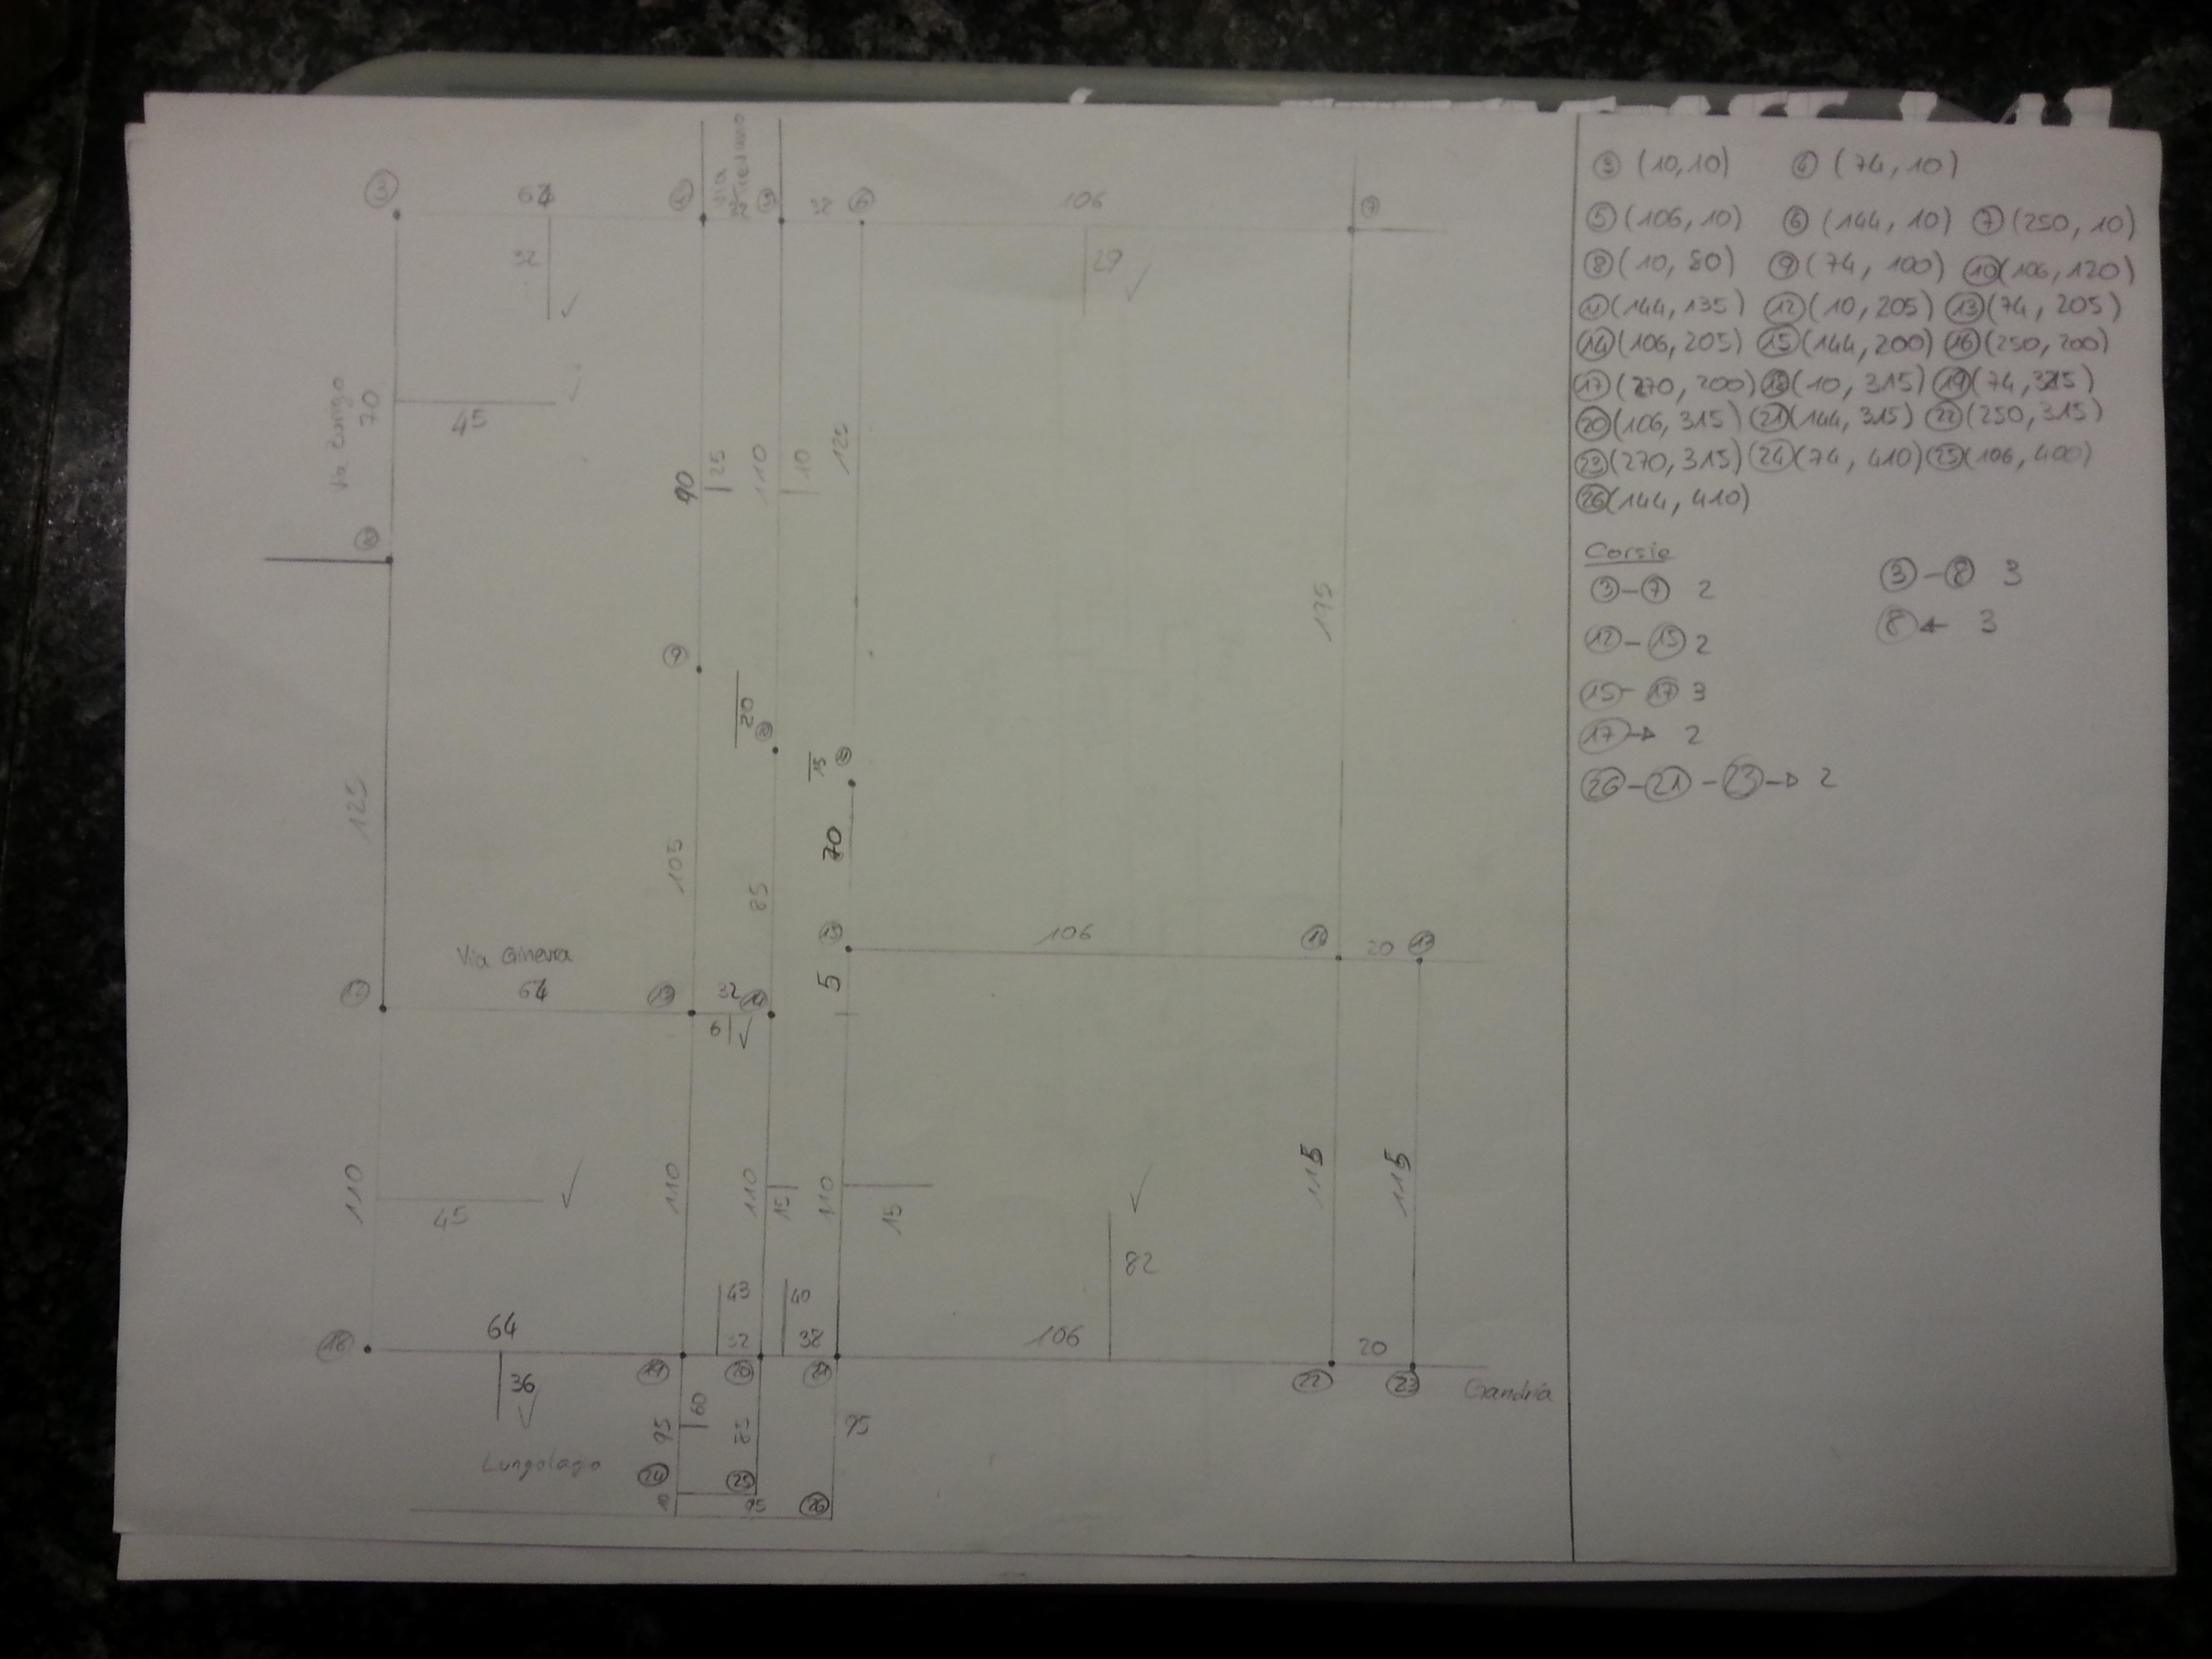 ③ 64 ④ Via Tresano 32 ⑤ 32 ⑥ 106 ⑦
32 29
Via Zurigo 70
45
90 25 110 10 125
⑧
195
⑨
20 ⑩
15 ⑪
125 105 85 70
⑮ 106 ⑯ 20 ⑰
Via Ginevra
⑫ 64 ⑬ 32 ⑭ 5
6
110 45 110 110 15 110 15 115 115
82
43 40
⑱ 64 32 38 106 20
36 ⑲ ⑳ ㉑ ㉒ ㉓ Gandria
60
95 85 95
Lungolago ㉔ ㉕
10 95 ㉖
③ (10,10) ④ (74,10)
⑤ (106,10) ⑥ (144,10) ⑦ (250,10)
⑧ (10,80) ⑨ (74,100) ⑩ (106,120)
⑪ (144,135) ⑫ (10,205) ⑬ (74,205)
⑭ (106,205) ⑮ (144,200) ⑯ (250,200)
⑰ (270,200) ⑱ (10,315) ⑲ (74,315)
⑳ (106,315) ㉑ (144,315) ㉒ (250,315)
㉓ (270,315) ㉔ (74,410) ㉕ (106,400)
㉖ (144,410)
Corsie
③-⑦ 2 ③-⑧ 3
⑫-⑮ 2 ⑧← 3
⑮-⑰ 3
⑰→ 2
㉖-㉑-㉓→ 2